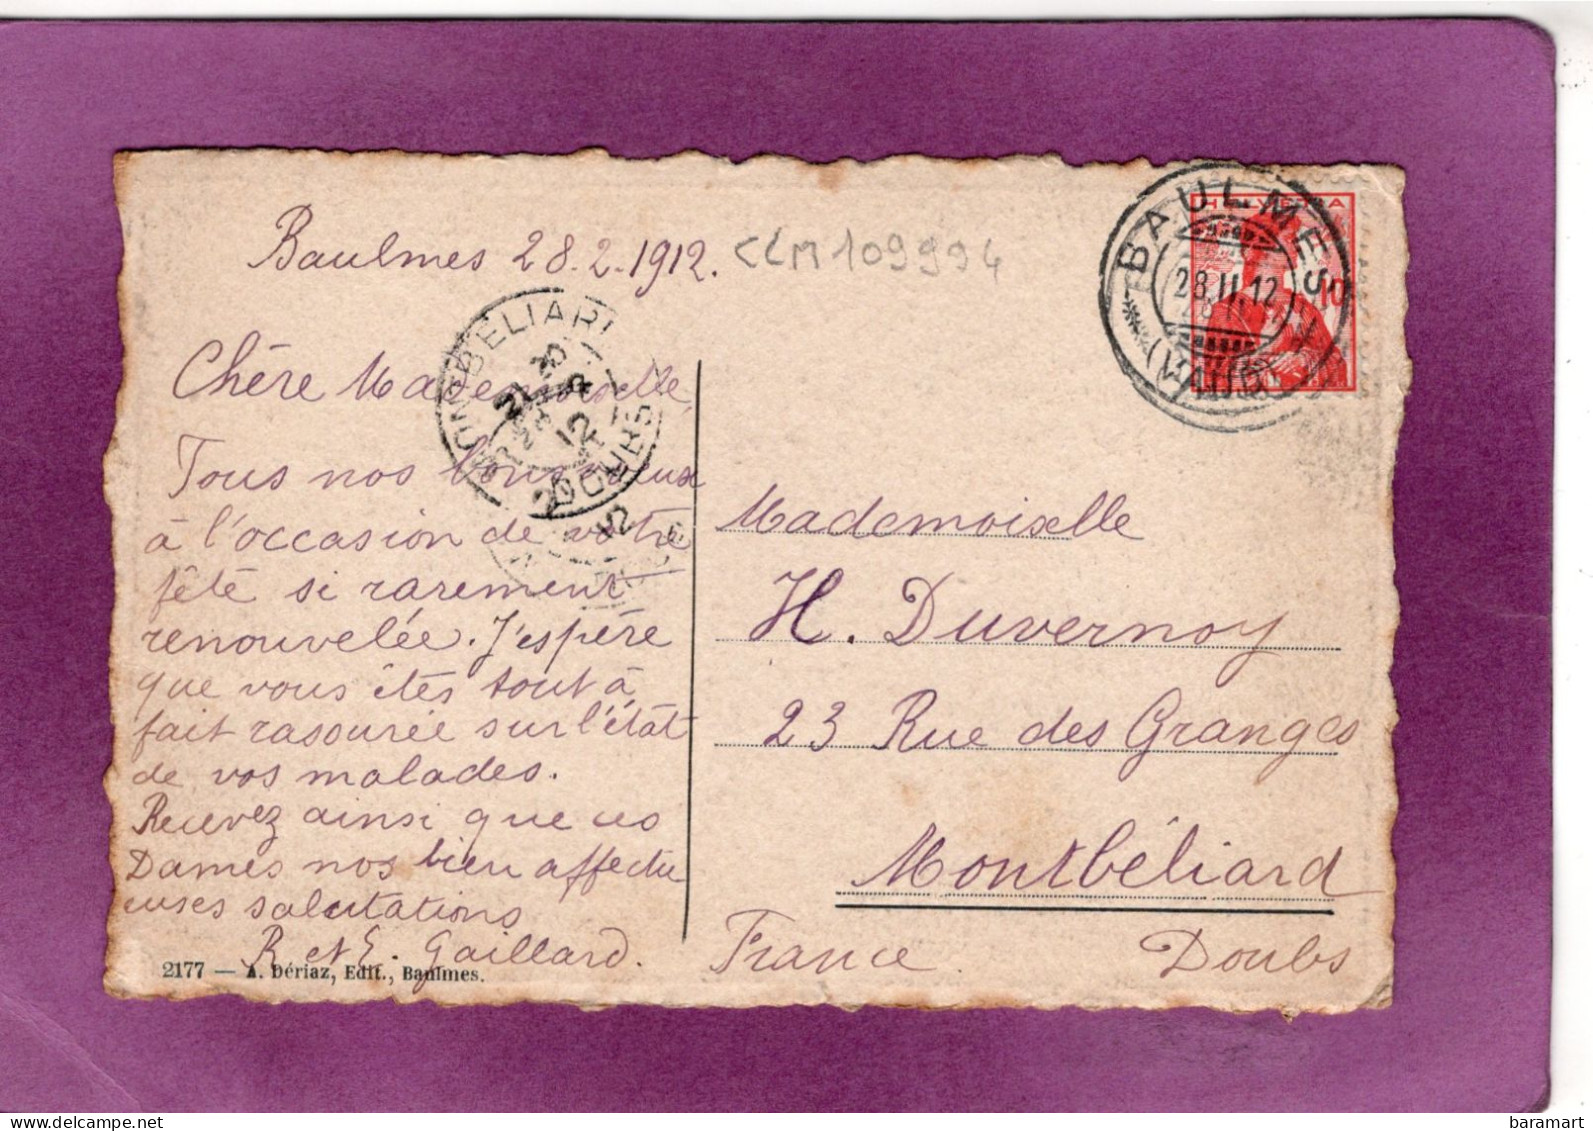 Baulmes 28.2.1912.
CLM109994
Chère Mademoiselle,
Tous nos bons vœux
à l'occasion de votre
fête si rarement
renouvelée. J'espère
que vous êtes tout à
fait rasourée sur l'état
de vos malades.
Recevez ainsi que ces
Dames nos bien affectu
euses salutations
R et E. Gaillard.
2177 — A. Dériaz, Edit., Baulmes.
MONTBELIARD
DOUBS
HELVETIA
10
BAULMES
28.II.12
(VAUD)
Mademoiselle
H. Duvernoy
23 Rue des Granges
Montbéliard
France Doubs
baramart